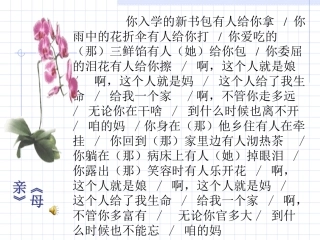 你入学的新书包有人给你拿 / 你
雨中的花折伞有人给你打 / 你爱吃的
（那）三鲜馅有人（她）给你包 / 你委屈
的泪花有人给你擦 / 啊，这个人就是娘
/ 啊，这个人就是妈 / 这个人给了我生
命 / 给我一个家 / 啊，不管你走多远
/ 无论你在干啥 / 到什么时候也离不开
/ 咱的妈 / 你身在（那）他乡住有人在牵
挂 / 你回到（那）家里边有人沏热茶 /
你躺在（那）病床上有人（她）掉眼泪 /
你露出（那）笑容时有人乐开花 / 啊，
这个人就是娘 / 啊，这个人就是妈 /
这个人给了我生命 / 给我一个家 / 啊，
不管你多富有 / 无论你官多大 / 到什
么时候也不能忘 / 咱的妈
《母
亲》